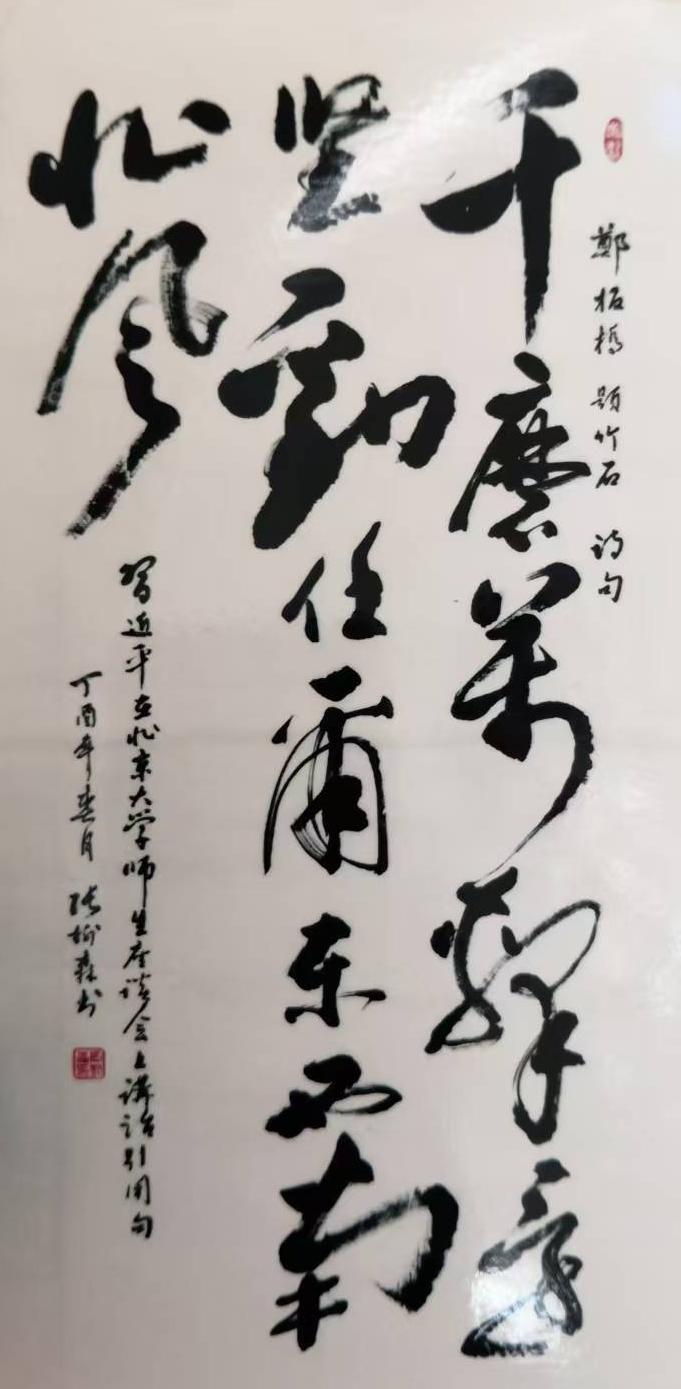 鄭板橋 题竹石 诗句
千磨萬擊還
坚勁任爾东西南
北风
習近平在北京大学师生座谈会上講话引用句
丁酉年春月 张森书